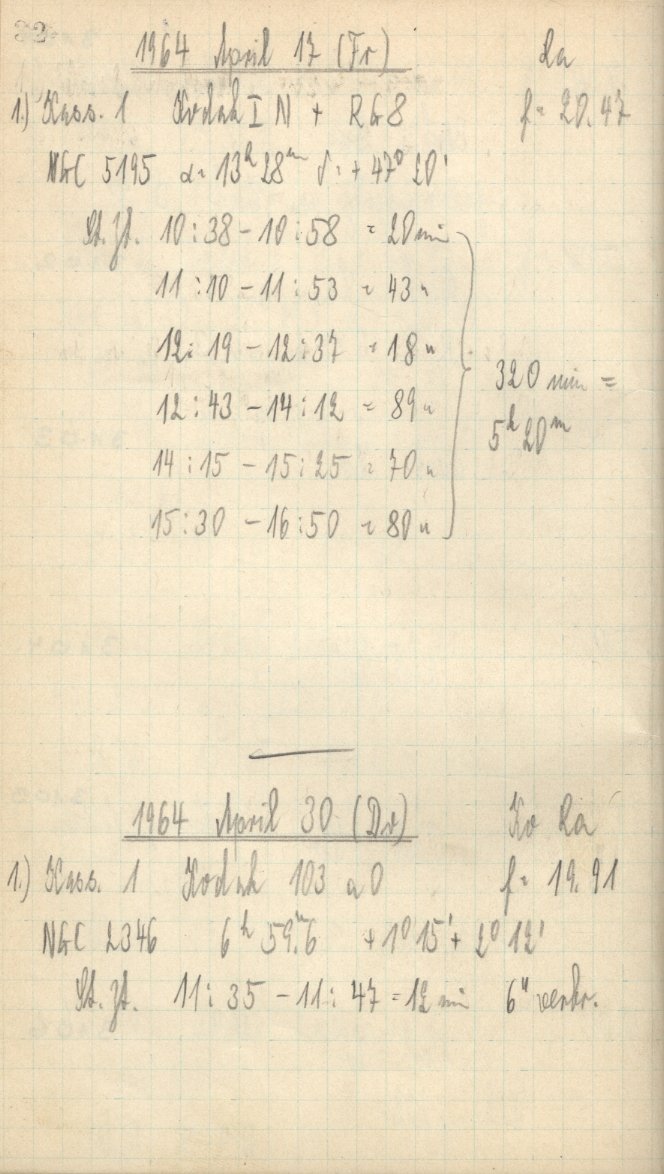 32
1964 April 17 (Fr) Ra
1.) Kass. 1 Kodak I N + RG8 f = 20.47
NGC 5195 α = 13h 28m δ = + 47° 20'
St. Zt. 10:38 – 10:58 = 20 min
11:10 – 11:53 = 43 "
12:19 – 12:37 = 18 "
12:43 – 14:12 = 89 "
320 min =
14:15 – 15:25 = 70 "
5h 20m
15:30 – 16:50 = 80 "
1964 April 30 (Do) Ko Ra
1.) Kass. 1 Kodak 103 a O f = 19.91
NGC 2346 6h 59m.6 + 1° 15' + 2° 12'
St. Zt. 11:35 – 11:47 = 12 min 6"